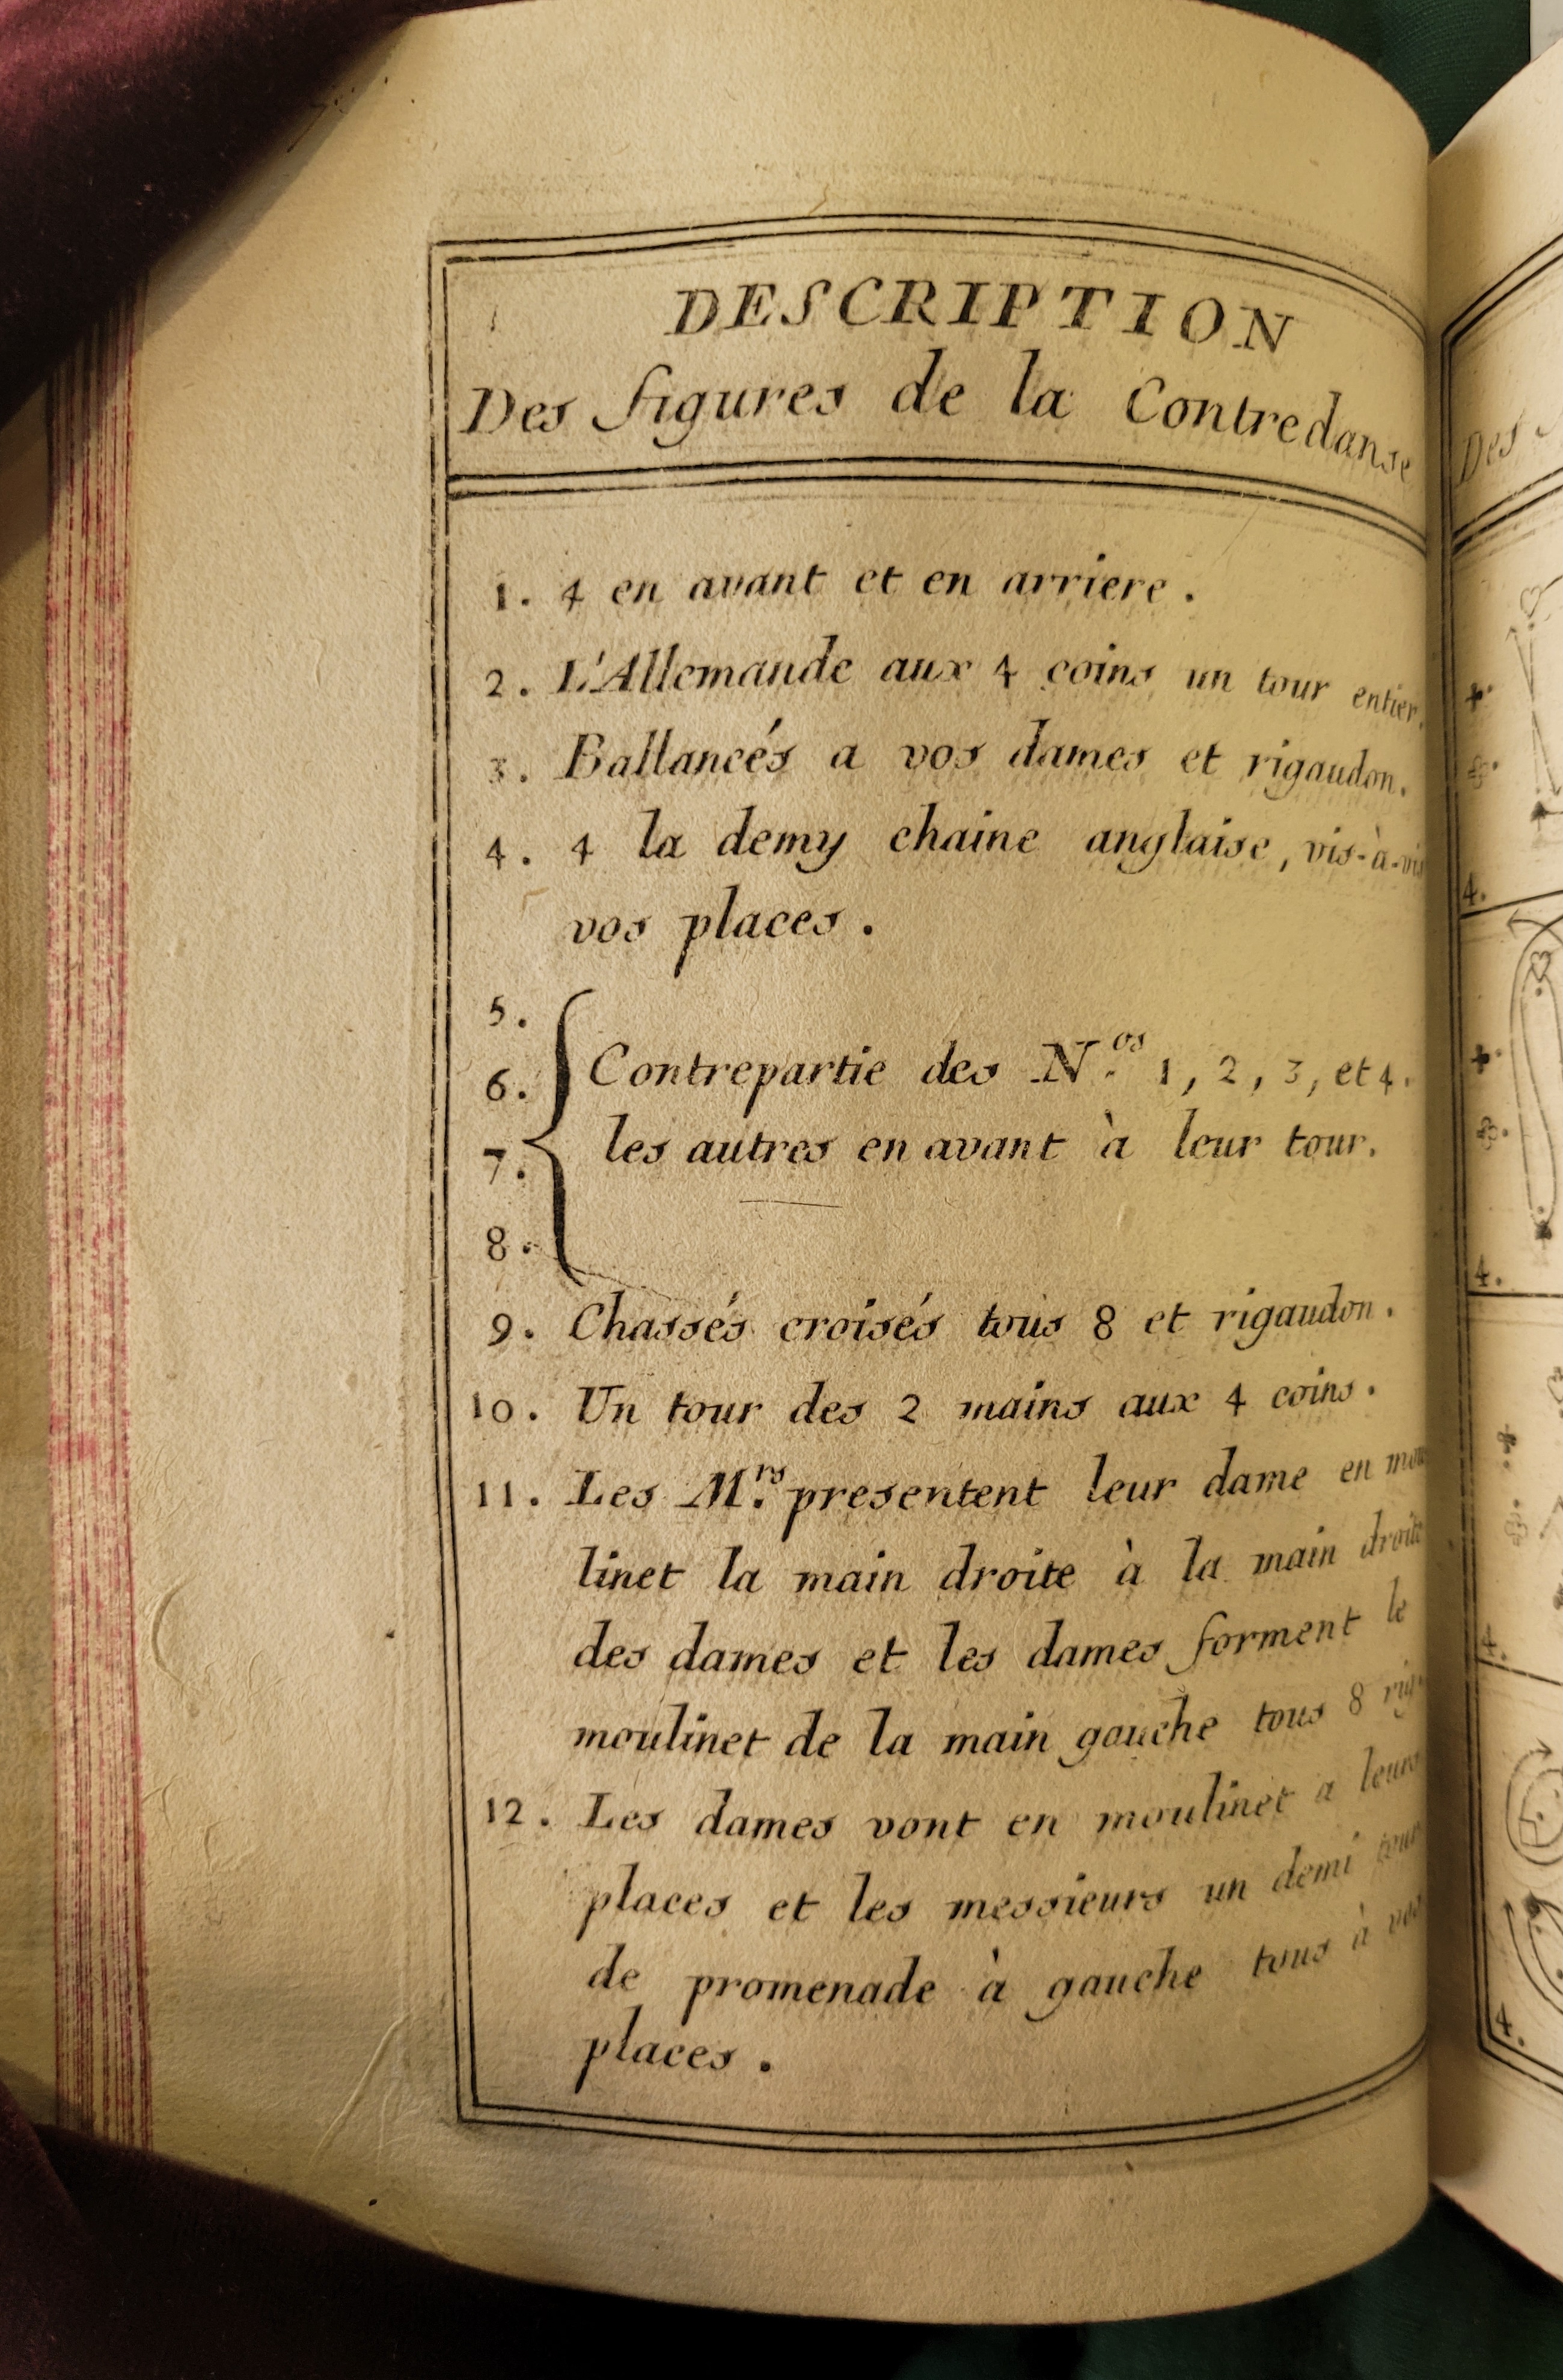 DESCRIPTION
Des figures de la Contredanse
1. 4 en avant et en arriere.
2. L'Allemande aux 4 coins un tour entier.
3. Ballancés a vos dames et rigaudon.
4. 4 la demy chaine anglaise, vis-à-vis
vos places.
5.
6. Contrepartie des N.os 1, 2, 3, et 4.
7. les autres en avant à leur tour.
8.
9. Chassés croisés tous 8 et rigaudon.
10. Un tour des 2 mains aux 4 coins.
11. Les M.rs presentent leur dame en mou
linet la main droite à la main droite
des dames et les dames forment le
moulinet de la main gauche tous 8 rig.
12. Les dames vont en moulinet a leurs
places et les messieurs un demi tour
de promenade à gauche tous à vos
places.
Des
4.
4.
4.
4.